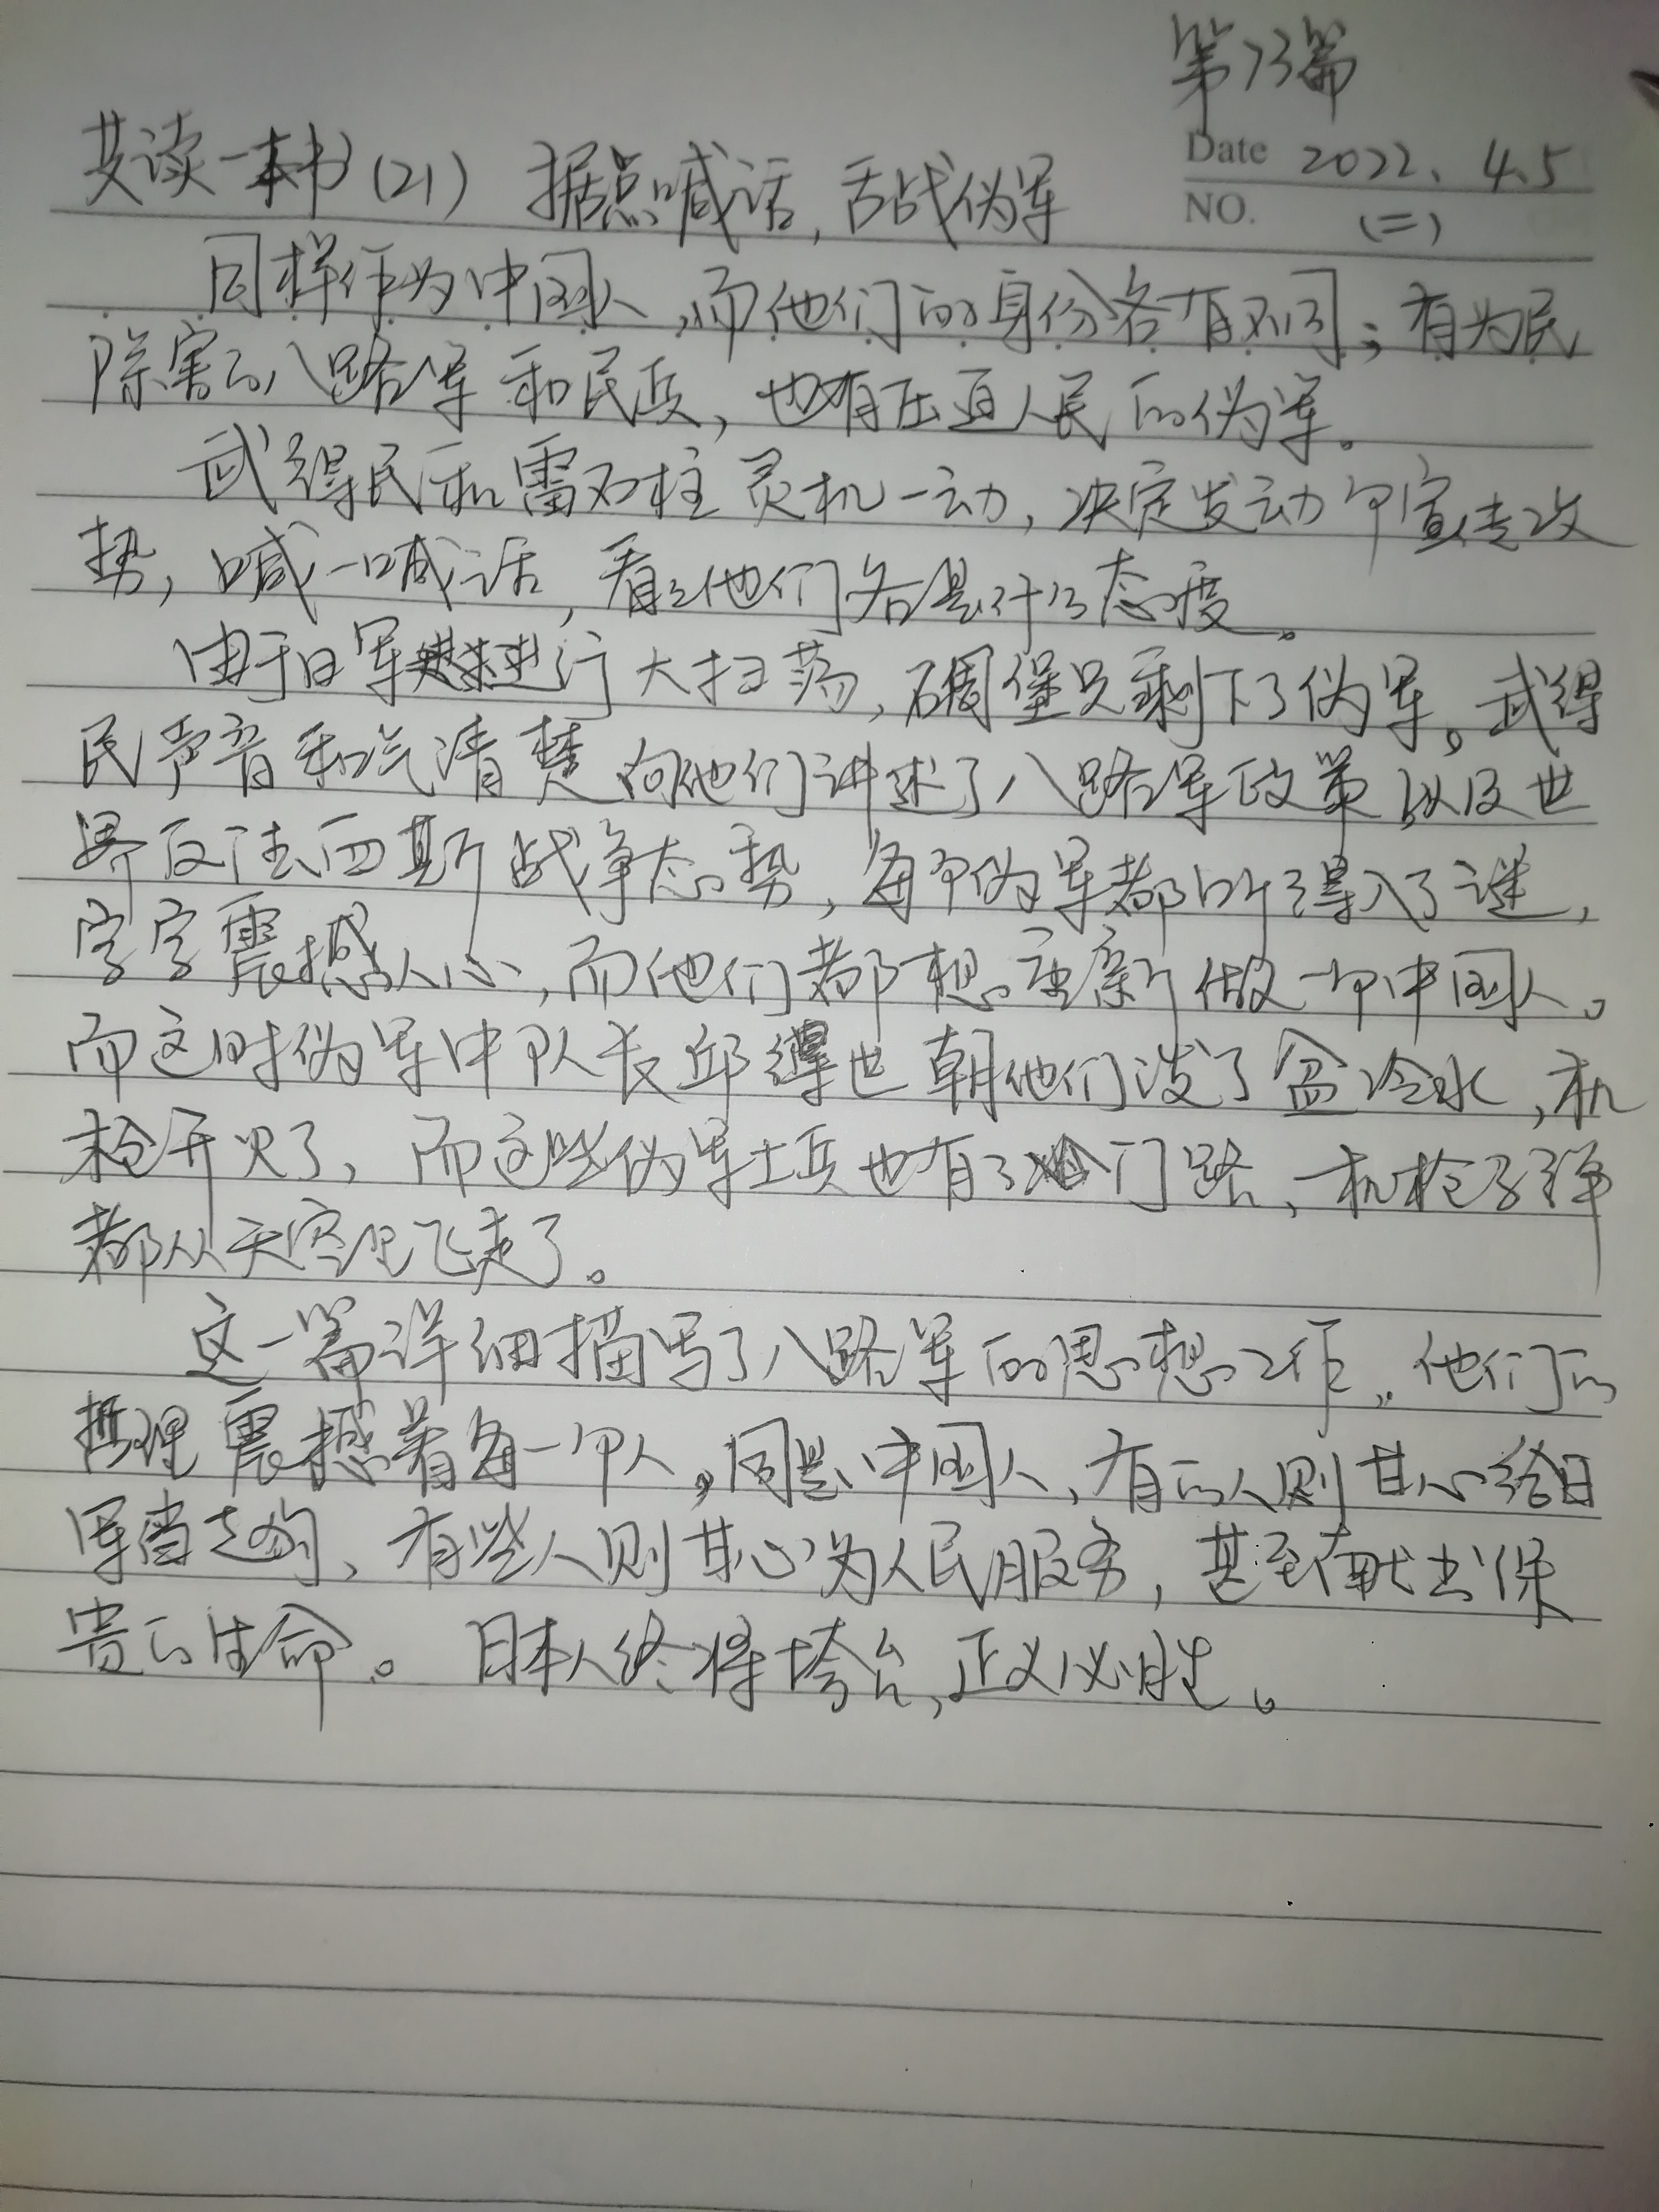 第73篇
Date 2022.4.5
NO. (二)
共读一本书(21) 据点喊话,舌战伪军
同样作为中国人,而他们的身份各有不同;有为民
除害的八路军和民兵,也有压迫人民的伪军。
武得民和雷石柱灵机一动,决定发动个宣传攻
势,喊一喊话,看看他们各是什么态度。
由于日军进行大扫荡,碉堡只剩下了伪军。武得
民声音和气清楚向他们讲述了八路军政策以及世
界反法西斯战争态势,每个伪军都听得入了谜,
字字震撼人心,而他们都想重新做一个中国人。
而这时伪军中队长邱得世朝他们泼了盆冷水,机
枪开火了,而这些伪军士兵也有了门路,机枪子弹
都从天空见飞走了。
这一篇详细描写了八路军的思想工作,他们的
哲理震撼着每一个人。同是中国人,有的人则甘心给日
军当走狗,有些人则甘心为人民服务,甚至献出保
贵的生命。日本人终将垮台,正义必胜。